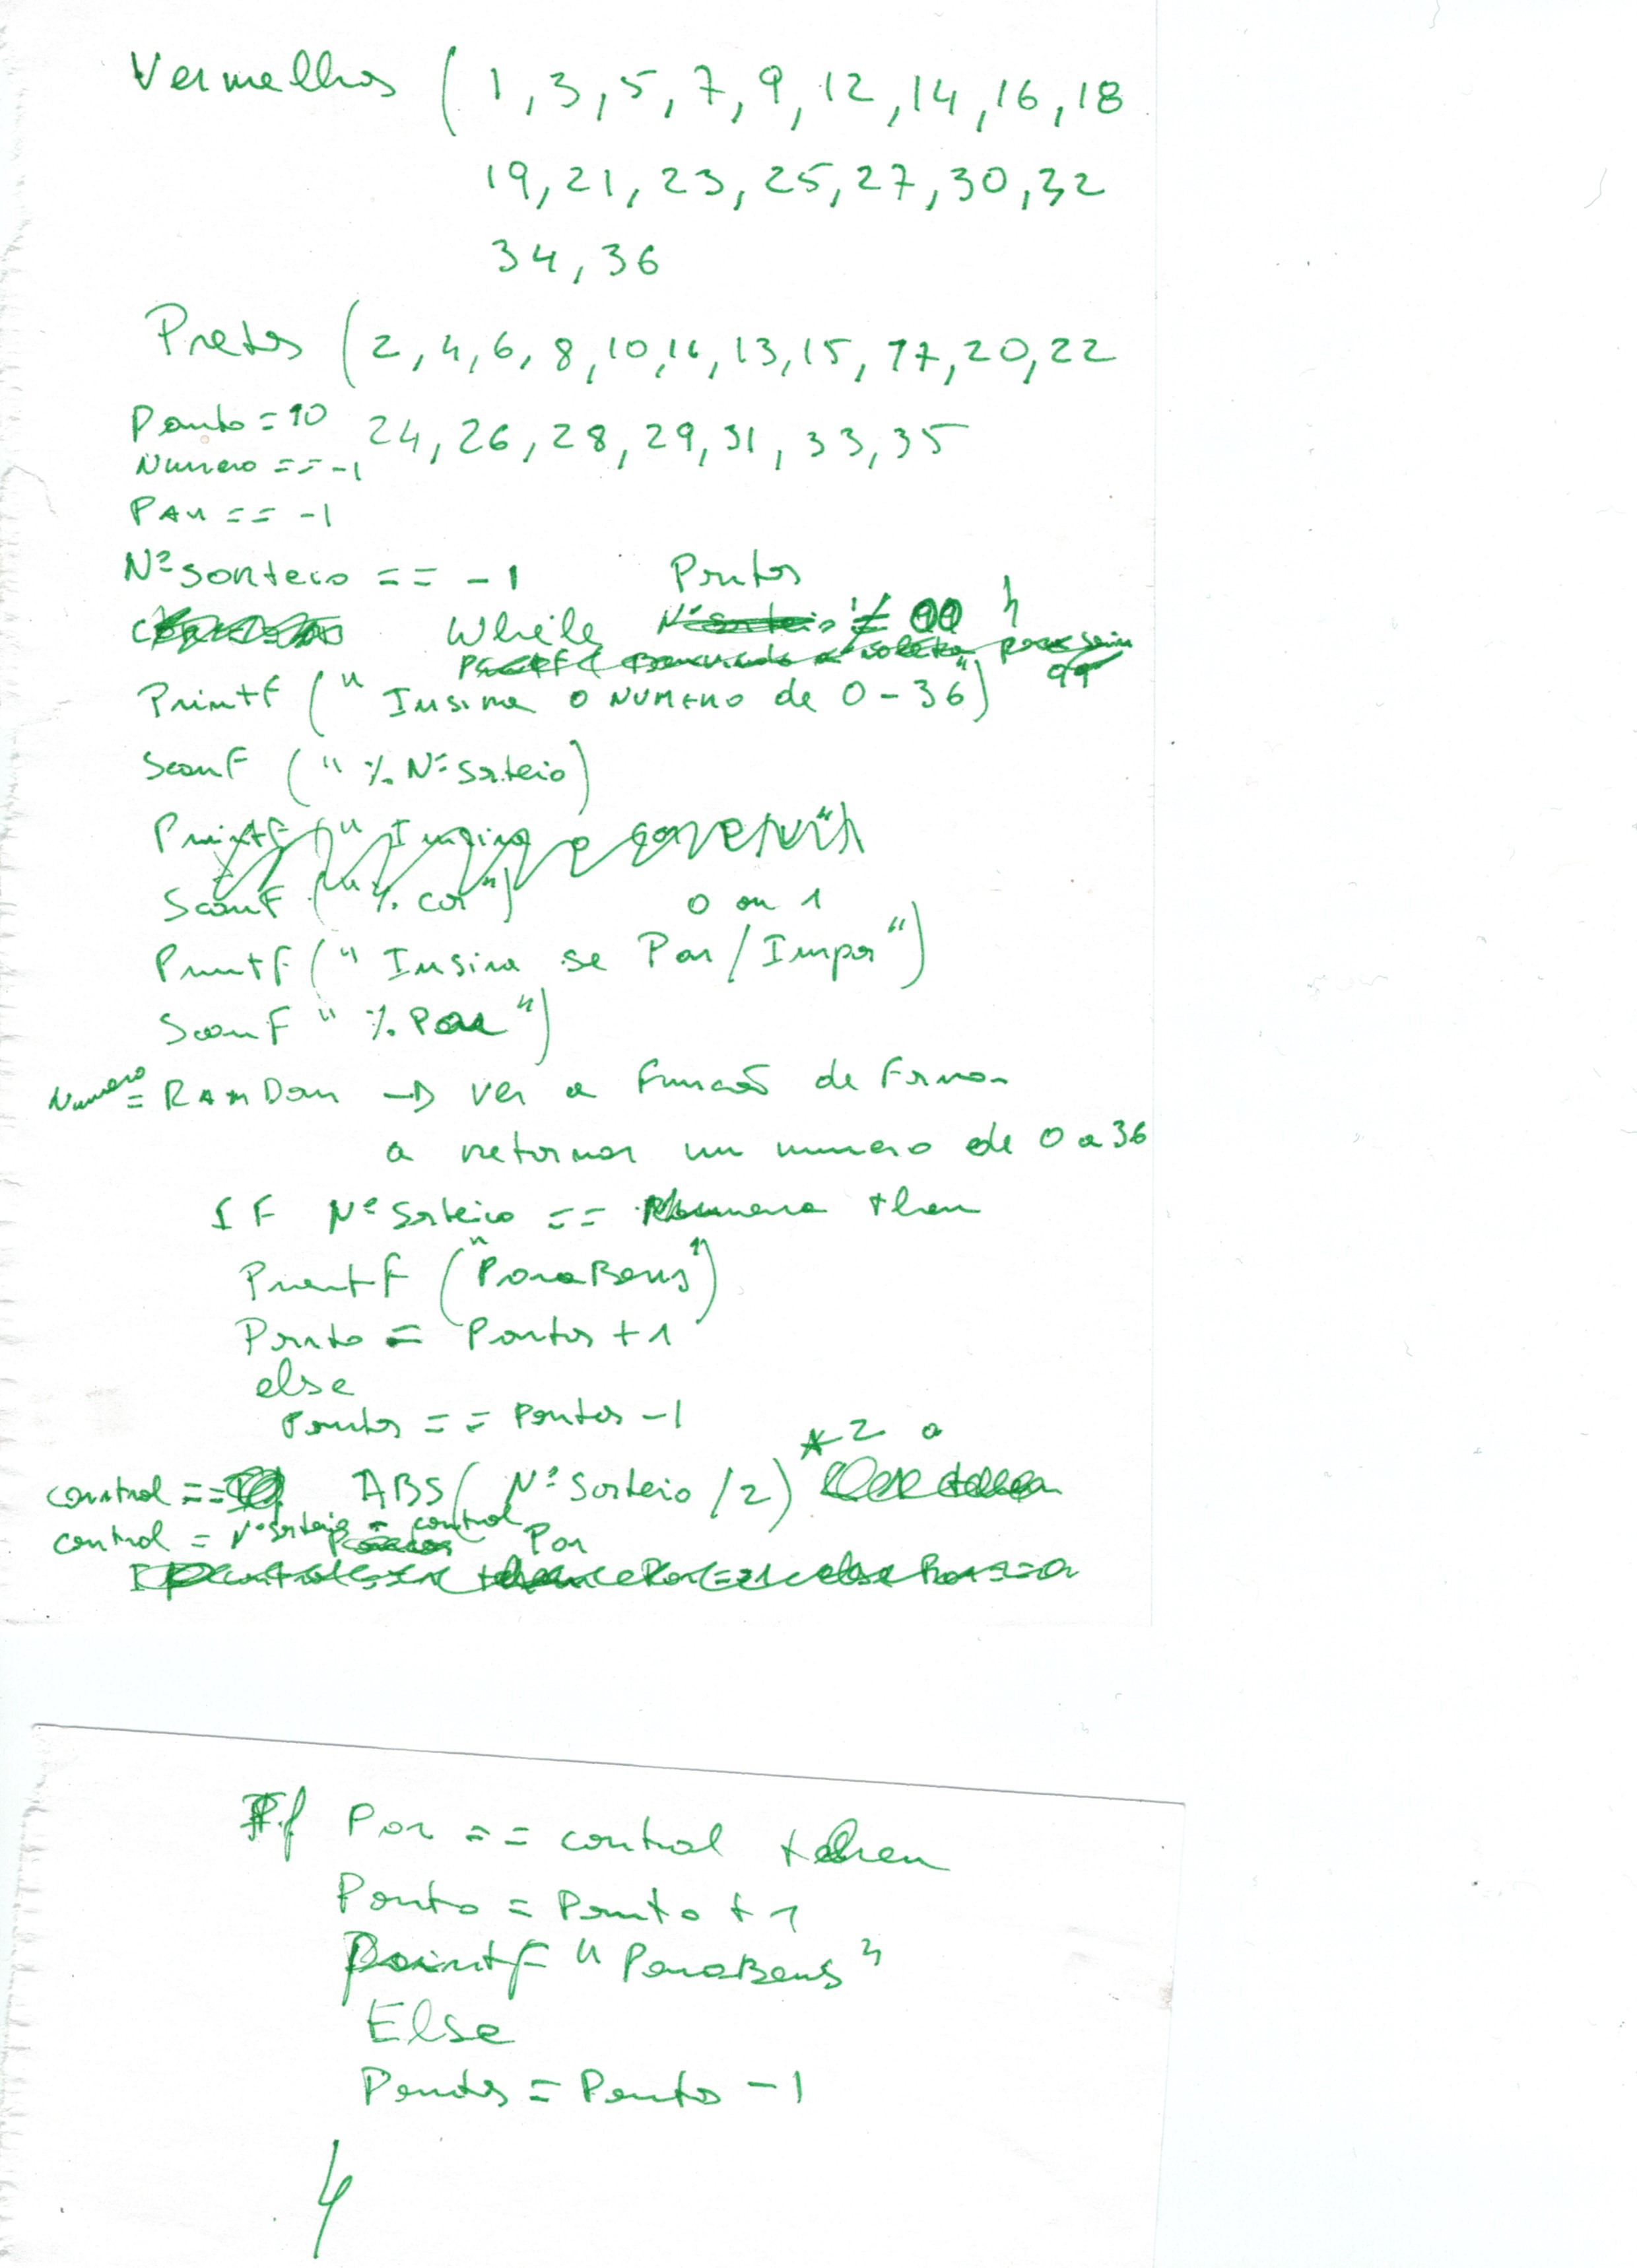 Vermelhos ( 1, 3, 5, 7, 9, 12, 14, 16, 18
19, 21, 23, 25, 27, 30, 32
34, 36
Pretos ( 2, 4, 6, 8, 10, 11, 13, 15, 17, 20, 22
Ponto = 10 24, 26, 28, 29, 31, 33, 35
Numero == -1
PAR == -1
Nº sorteio == -1 Pontos
While != 00 {
Printf (" Insira o NUMERO de 0 - 36)
Scanf (" % Nº Sorteio)
Printf (" Insira o
Scanf (" % cor") 0 ou 1
Printf (" Insira se Par / Impar ")
Scanf " % Par ")
Numero = RAMDom -> ver a funcão de forma
a retornar um numero de 0 a 36
IF Nº Sorteio == Numero then
Printf ("ParaBens")
Ponto = Pontos + 1
else
Pontos == Pontos - 1
*2 a
control == ABS( Nº Sorteio / 2)
control = Nº sorteio - control Par
If Par == control then
Ponto = Ponto + 1
Printf " ParaBens "
Else
Pontos = Ponto - 1
}